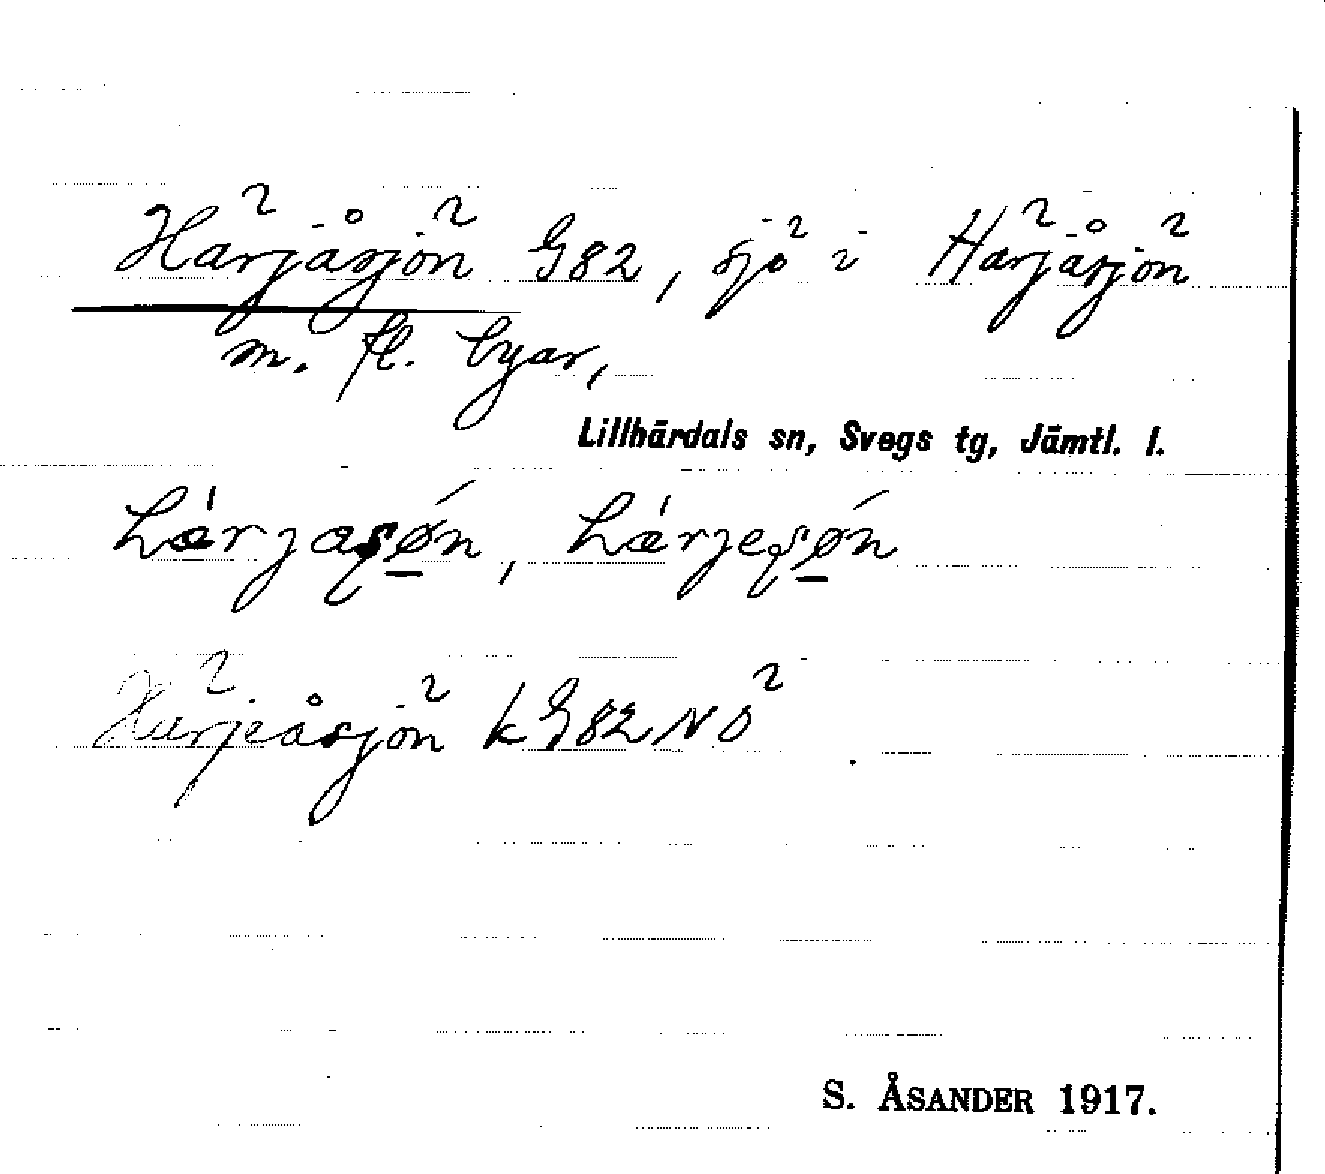 Härjåsjön G82, sjö i Härjåsjön
m. fl. byar,
Lillhärdals sn, Svegs tg, Jämtl. l.
Härjeåsjön kG82NÖ
S. ÅSANDER 1917.